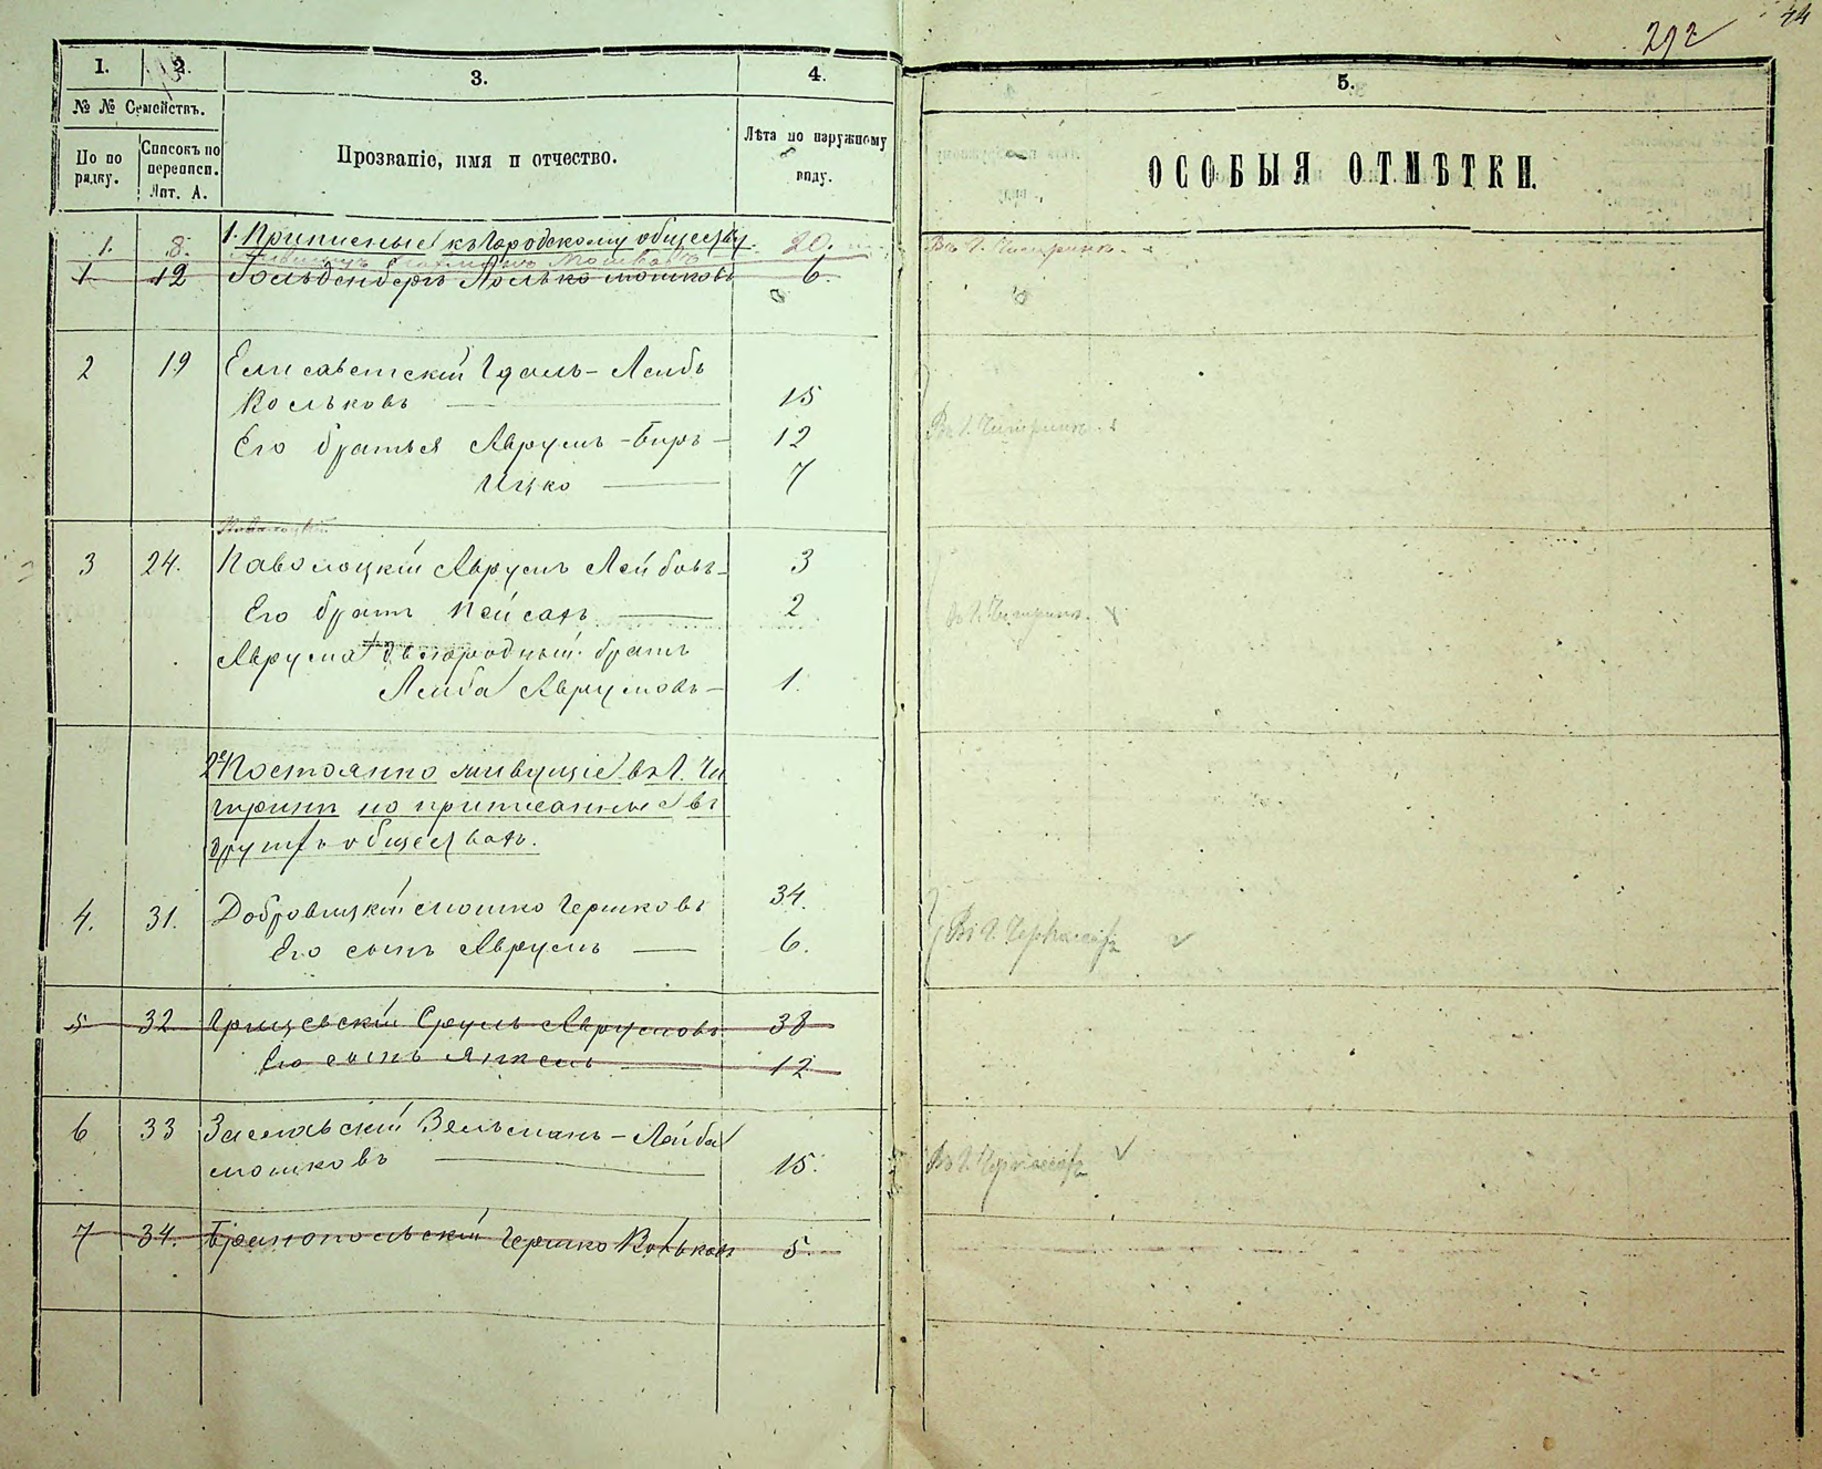 44
292
1.
2.
3.
4.
5.
№ № Семействъ.
По по
рядку.
Списокъ по
переписи.
Лит. А.
Прозваніе, имя и отчество.
Лѣта по наружному
виду.
ОСОБЫЯ ОТМѢТКИ.
1. Приписные къ городскому обществу.
1. 8. Мошковъ 20. Въ Г. Чигиринѣ.
1 12 Гольденбергъ Іосько Мошковъ 6.
2 19 Елисаветскій Гдаль-Лейбъ
Кольковъ 15
Его братья Аврумъ-Беръ 12 Въ Г. Чигиринѣ.
Ицко 7
Паволоцкій
3 24. Паволоцкій Аврумъ Лейбовъ 3
Его братъ Пейсахъ 2 Въ Г. Чигиринѣ.
Аврума двоюродный братъ
Лейба Аврумовъ 1.
2е Постоянно живущіе въ Г. Чи
гиринѣ но приписанные въ
другихъ обществахъ.
4. 31. Добровицкій Мошко Гершковъ 34.
Его сынъ Аврумъ 6. Въ Г. Черкассахъ
5 32 Грищевскій Сруль Аврумовъ 38
Его сынъ Янкель 12
6 33 Заславскій Зельманъ-Лейба
Мошковъ 15. Въ Г. Черкассахъ
7 34. Гершко Кольковъ 5.